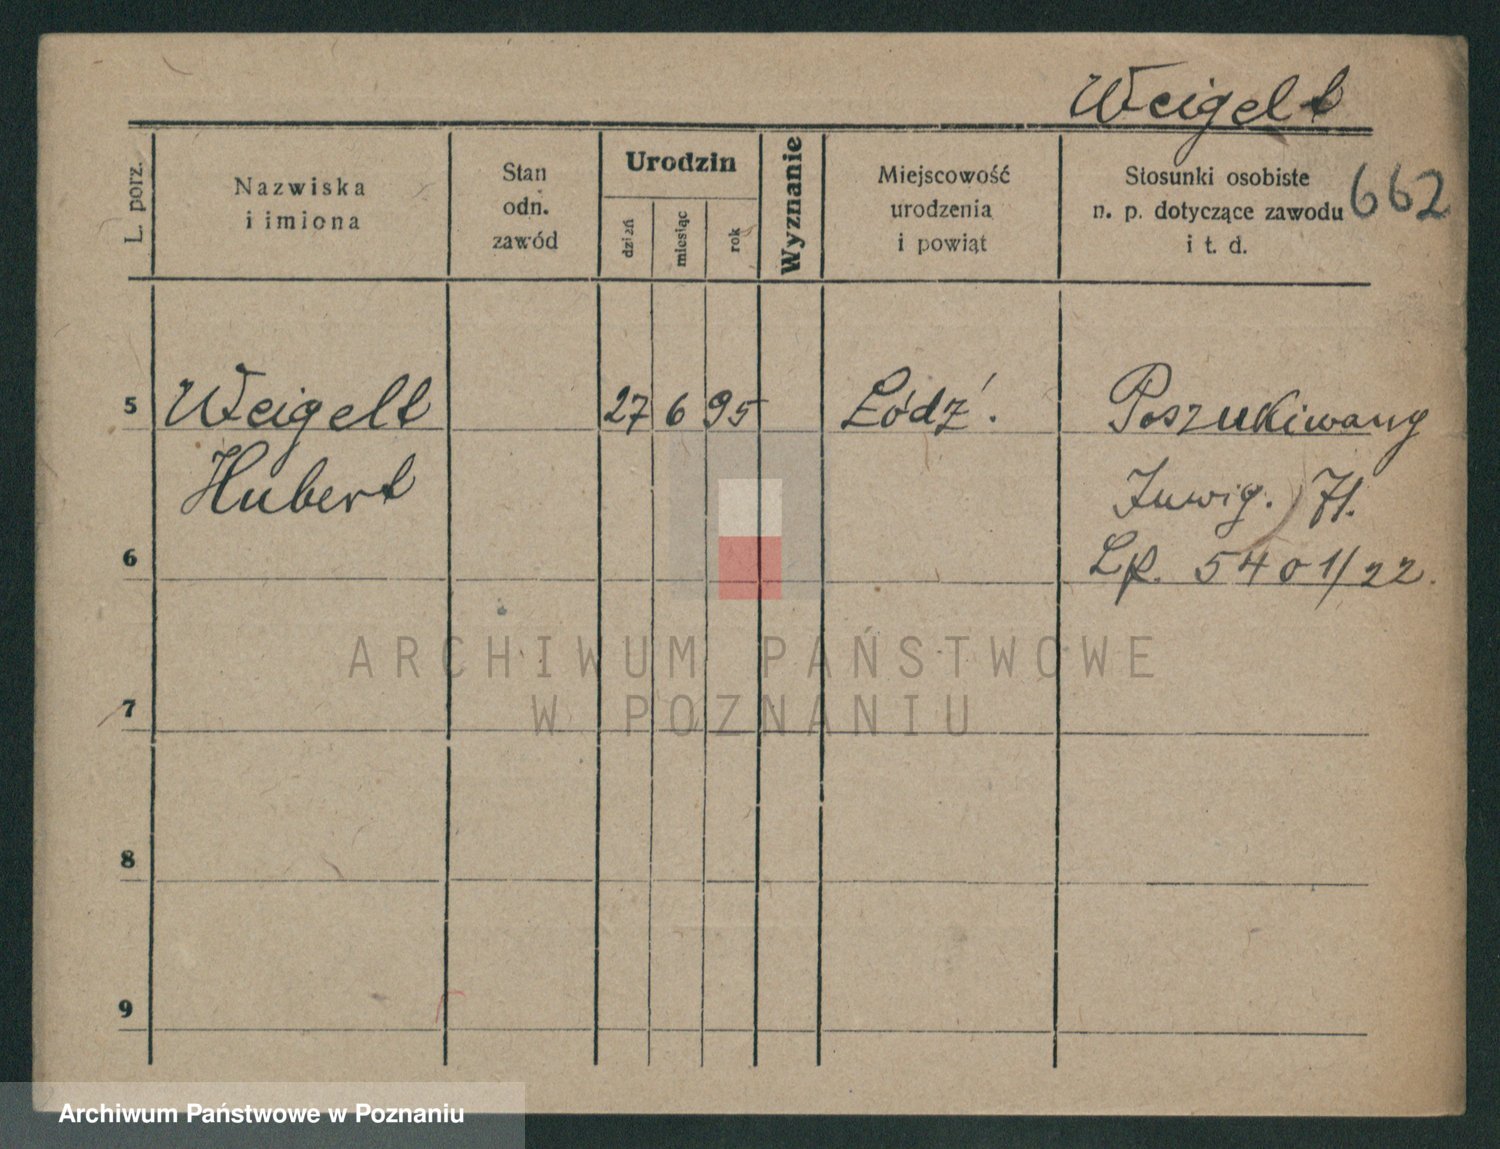 Weigelt
662
L. porz.
Nazwiska
i imiona
Stan
odn.
zawód
Urodzin
dzień
miesiąc
rok
Wyznanie
Miejscowość
urodzenia
i powiąt
Stosunki osobiste
n. p. dotyczące zawodu
i t. d.
5 Weigelt 27 6 95 Łódź. Poszukiwany
Hubert
6
Lp. 5401/22.
7
8
9
ARCHIWUM PAŃSTWOWE
W POZNANIU
Archiwum Państwowe w Poznaniu